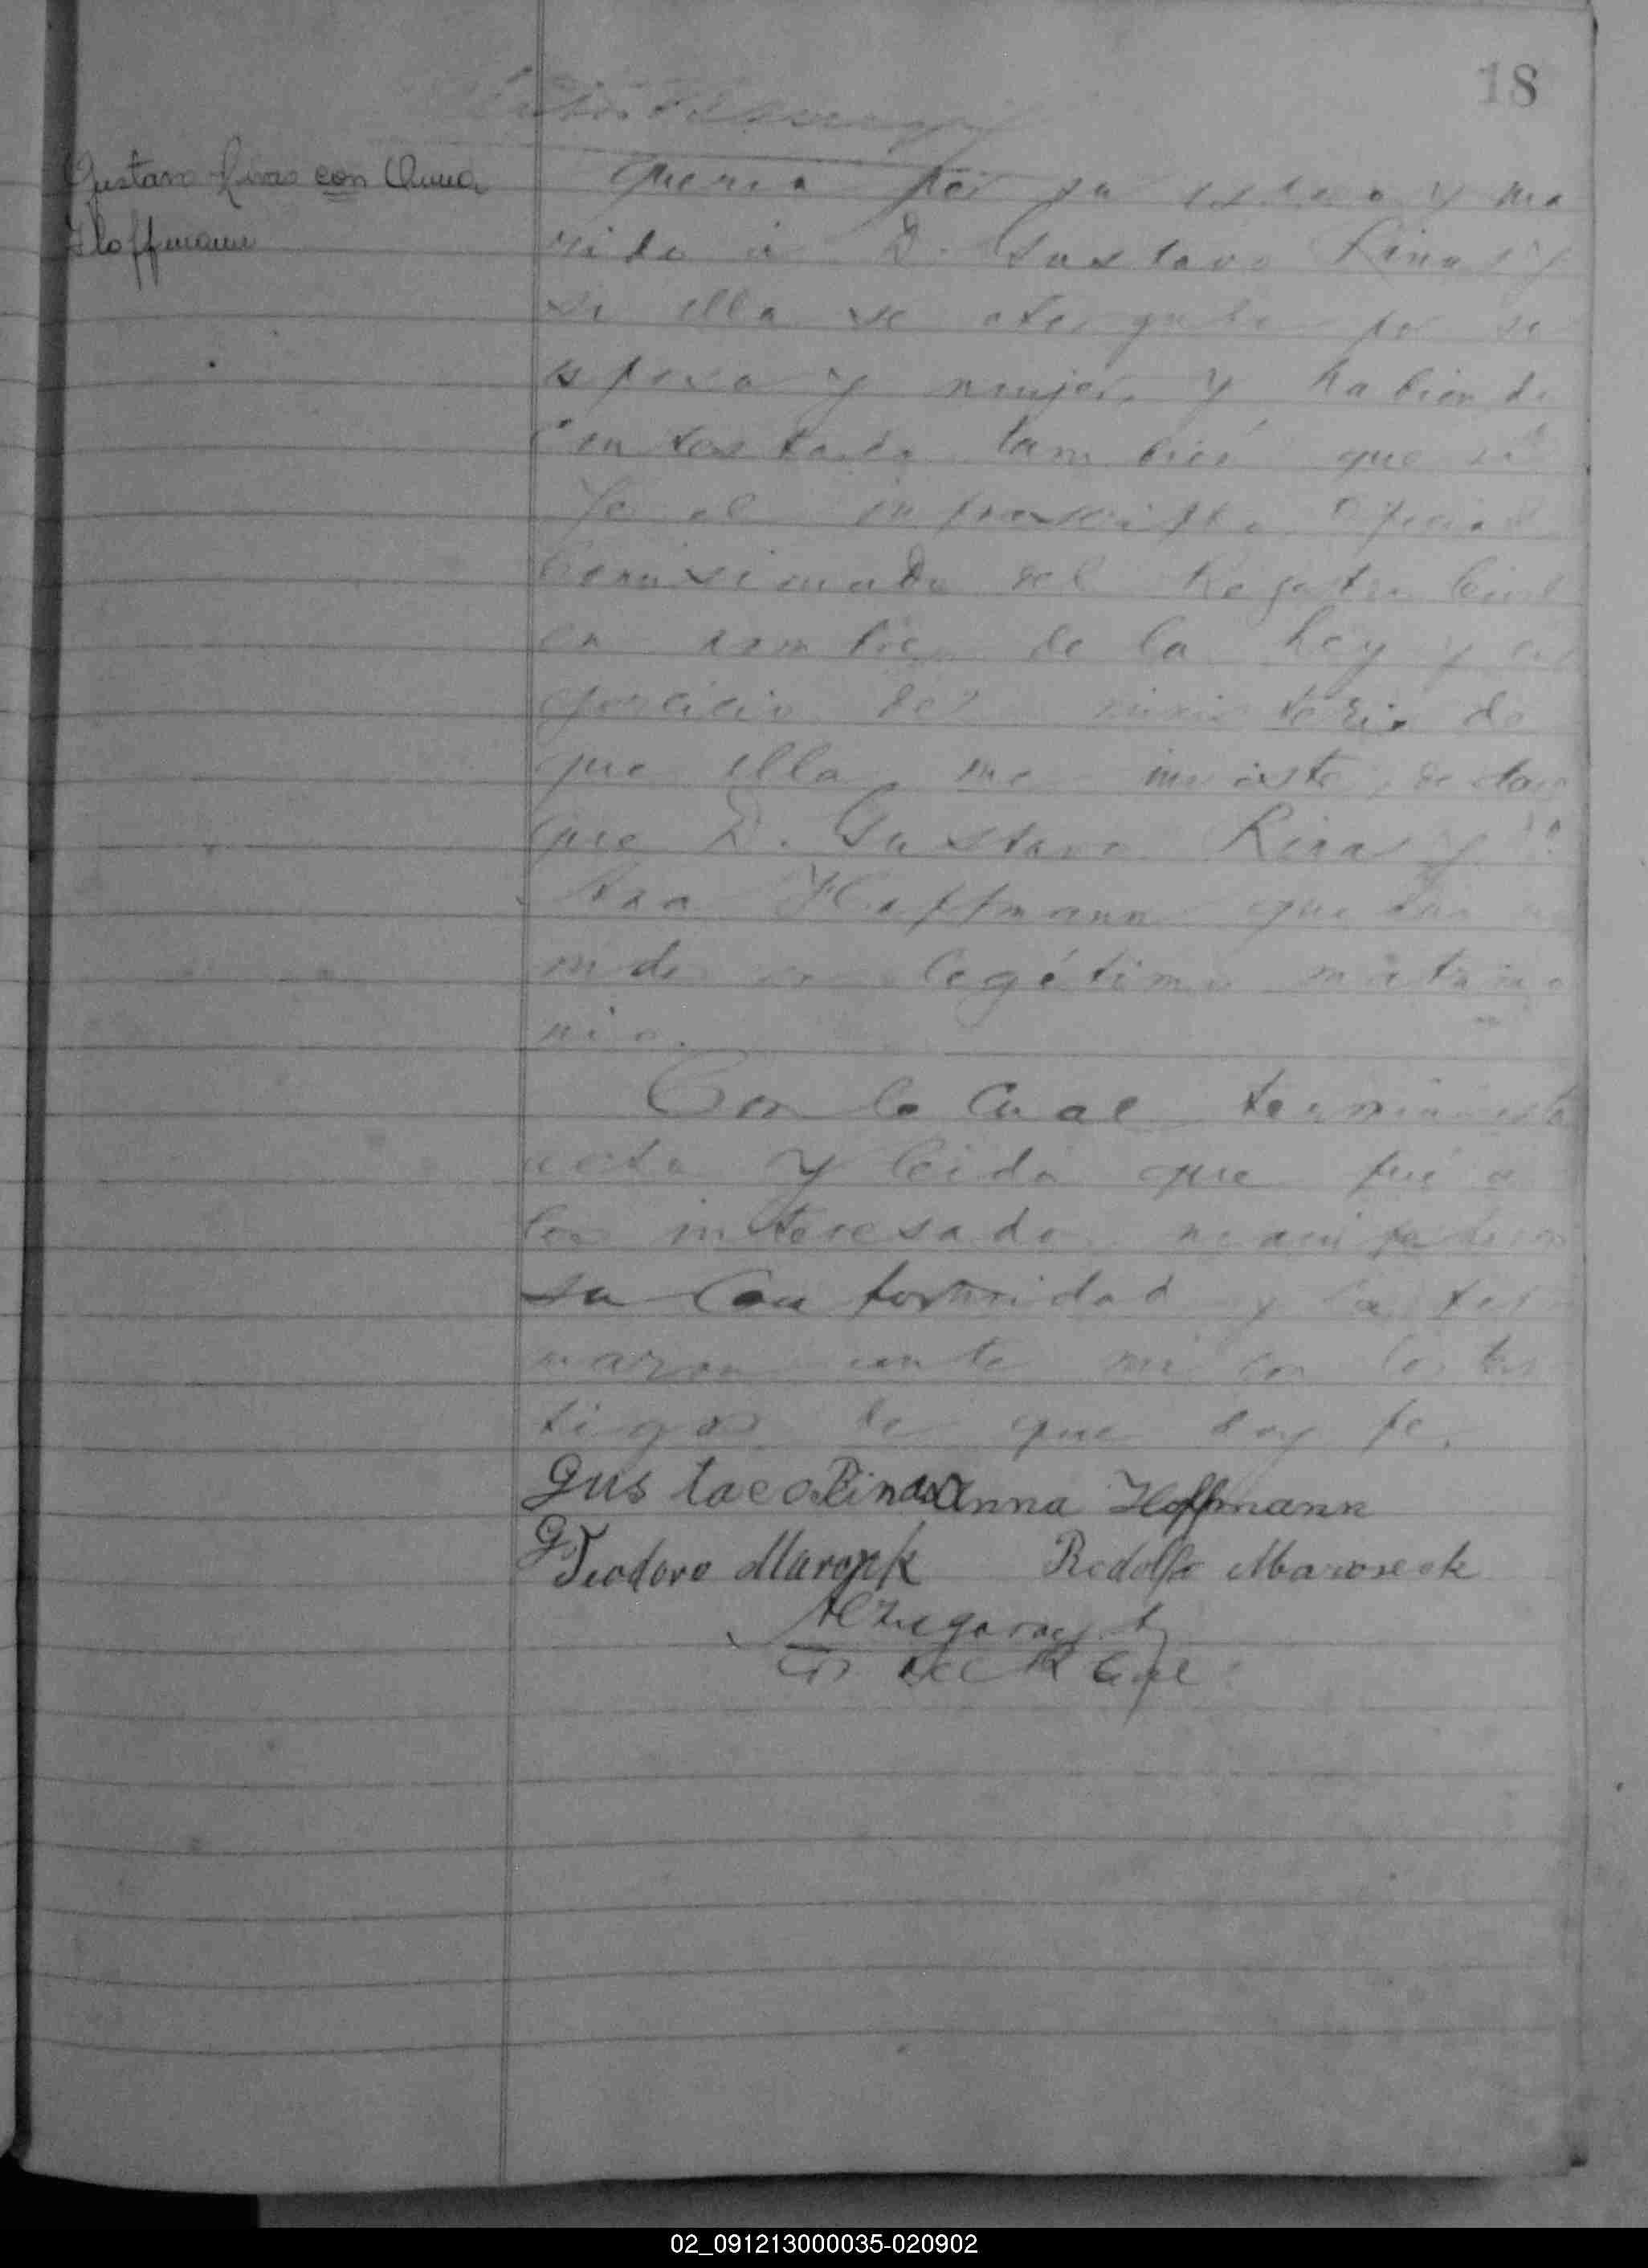 18
Gustavo Rinas con Anna
Hoffmann
queria por su esposo y ma
rido a D. Gustavo Rinas y
si ella se otorgaba por su
esposa y mujer, y habiendo
contestado tambien que si
Yo el infrascripto Oficial
Comisionado del Registro Civil
en nombre de la Ley y en
ejercicio del ministerio de
que ella me inviste, declaro
que D. Gustavo Rinas y
Ana Hoffmann quedan u
nidos en legítimo matrimo
nio.
Con lo cual termina esta
acta y leida que fué a
los interesados manifestaron
su conformidad y la fir
maron ante mi con los tes
tigos de que doy fe.
Gustavo Rinas Anna Hoffmann
Teodoro Rodolfo
02_091213000035-020902